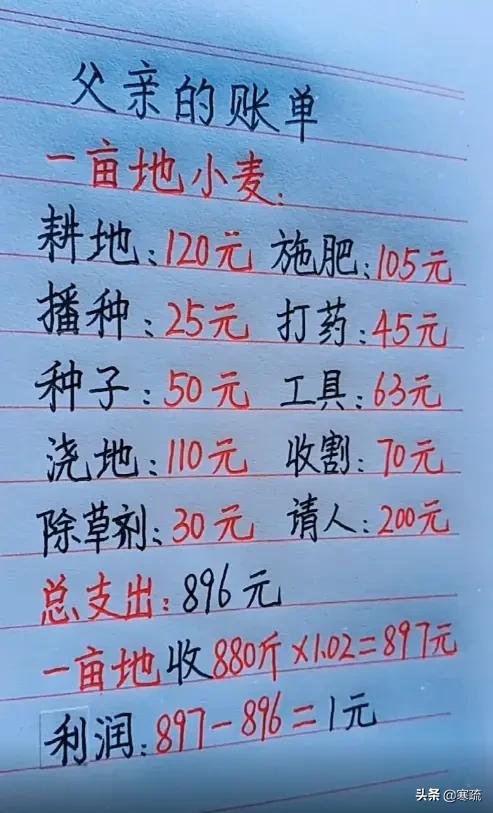 父亲的账单
一亩地小麦:
耕地:120元 施肥:105元
播种:25元 打药:45元
种子:50元 工具:63元
浇地:110元 收割:70元
除草剂:30元 请人:200元
总支出:896元
一亩地收880斤×1.02=897元
利润:897-896=1元
头条 @寒疏